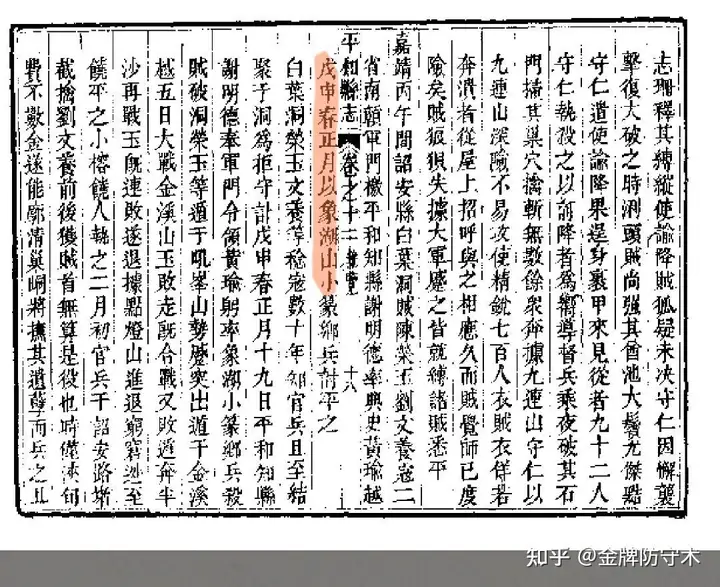 志珊釋其縛縱使諭降賊狐疑未决守仁因懈襲
擊復大破之時浰頭賊尚强其酋池大鬢尤傑黠
守仁遣使諭降果逞身裹甲來見從者九十二人
守仁執殺之以前降者爲嚮導督兵乘夜破其石
門擣其巢穴擒斬無數餘衆奔據九連山守仁以
九連山深險不易攻使精銳七百人衣賊衣佯若
奔潰者從崖上招呼與之相應久而賊覺師已度
險矣賊狼狽失據大軍蹙之皆就縛諸賊悉平
嘉靖丙午間詔安縣白葉洞賊陳榮玉劉文養寇二
省南贛軍門檄平和知縣謝明德率典史黃瑜越
平和縣志 卷之十二 雜覽 十八
戊申春正月以象湖山小篆鄉兵討平之
白葉洞榮玉文養等稔寇數十年知官兵且至結
聚子洞爲拒守計戊申春正月十九日平和知縣
謝明德奉軍門令領黃瑜躬率象湖小篆鄉兵殺
賊破洞榮玉等遁于吼峯山勢蹙突出遁于金溪
越五日大戰金溪山玉敗走旣合戰又敗遁奔半
沙再戰玉旣連敗遂退據點燈山進退窮窘逃至
饒平之小榕饒人執之二月初官兵于詔安路堵
截擒劉文養前後獲賊首無算是役也時僅浹旬
費不數金遂能廓清巢峒將撫其遺孽而兵之且
知乎 @金牌防守木